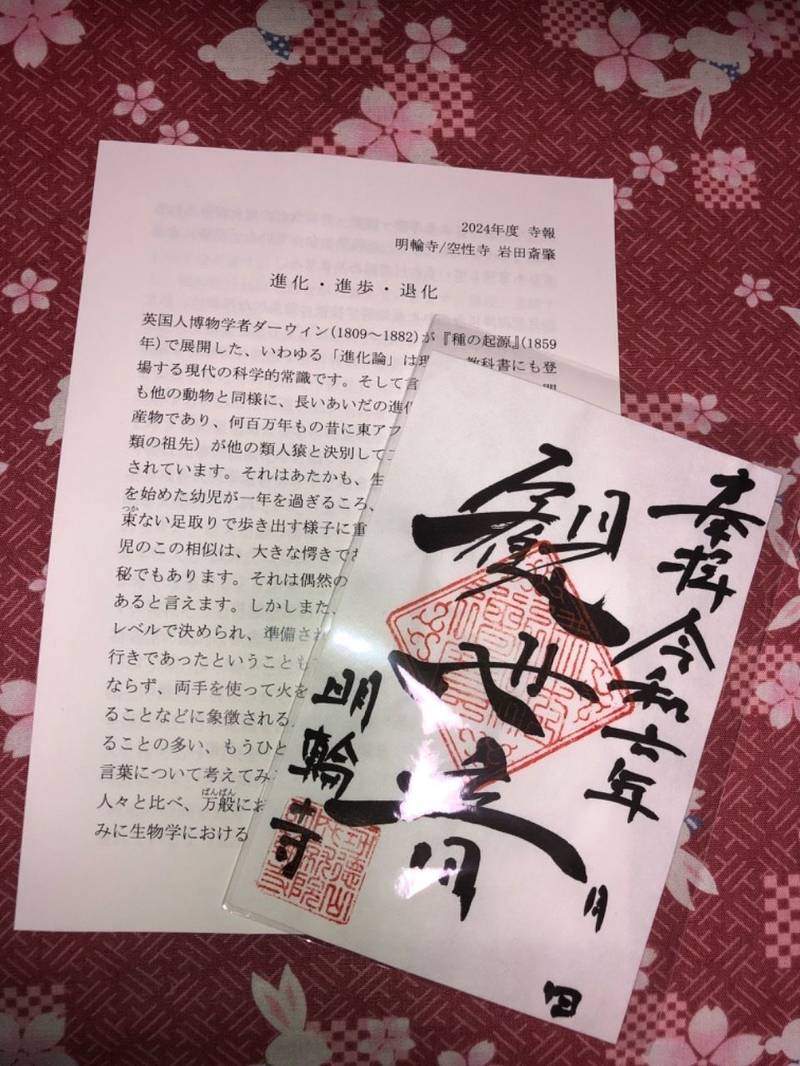 2024年度 寺報
明輪寺/空性寺 岩田斎肇
進化・進歩・退化
英国人博物学者ダーウィン(1809～1882)が『種の起源』(1859
年)で展開した、いわゆる「進化論」は 教科書にも登
場する現代の科学的常識です。そして言
も他の動物と同様に、長いあいだの進化
産物であり、何百万年もの昔に東アフ
類の祖先）が他の類人猿と決別して
されています。それはあたかも、生
を始めた幼児が一年を過ぎるころ、
つか
束ない足取りで歩き出す様子に重
児のこの相似は、大きな愕きであ
秘でもあります。それは偶然の
あると言えます。しかしまた、
レベルで決められ、準備され
行きであったということも
ならず、両手を使って火を
ることなどに象徴される
ることの多い、もうひと
言葉について考えてみ
ばんぱん
人々と比べ、万般にお
みに生物学における
奉拝 令和六年 月 日
観世音
明輪寺